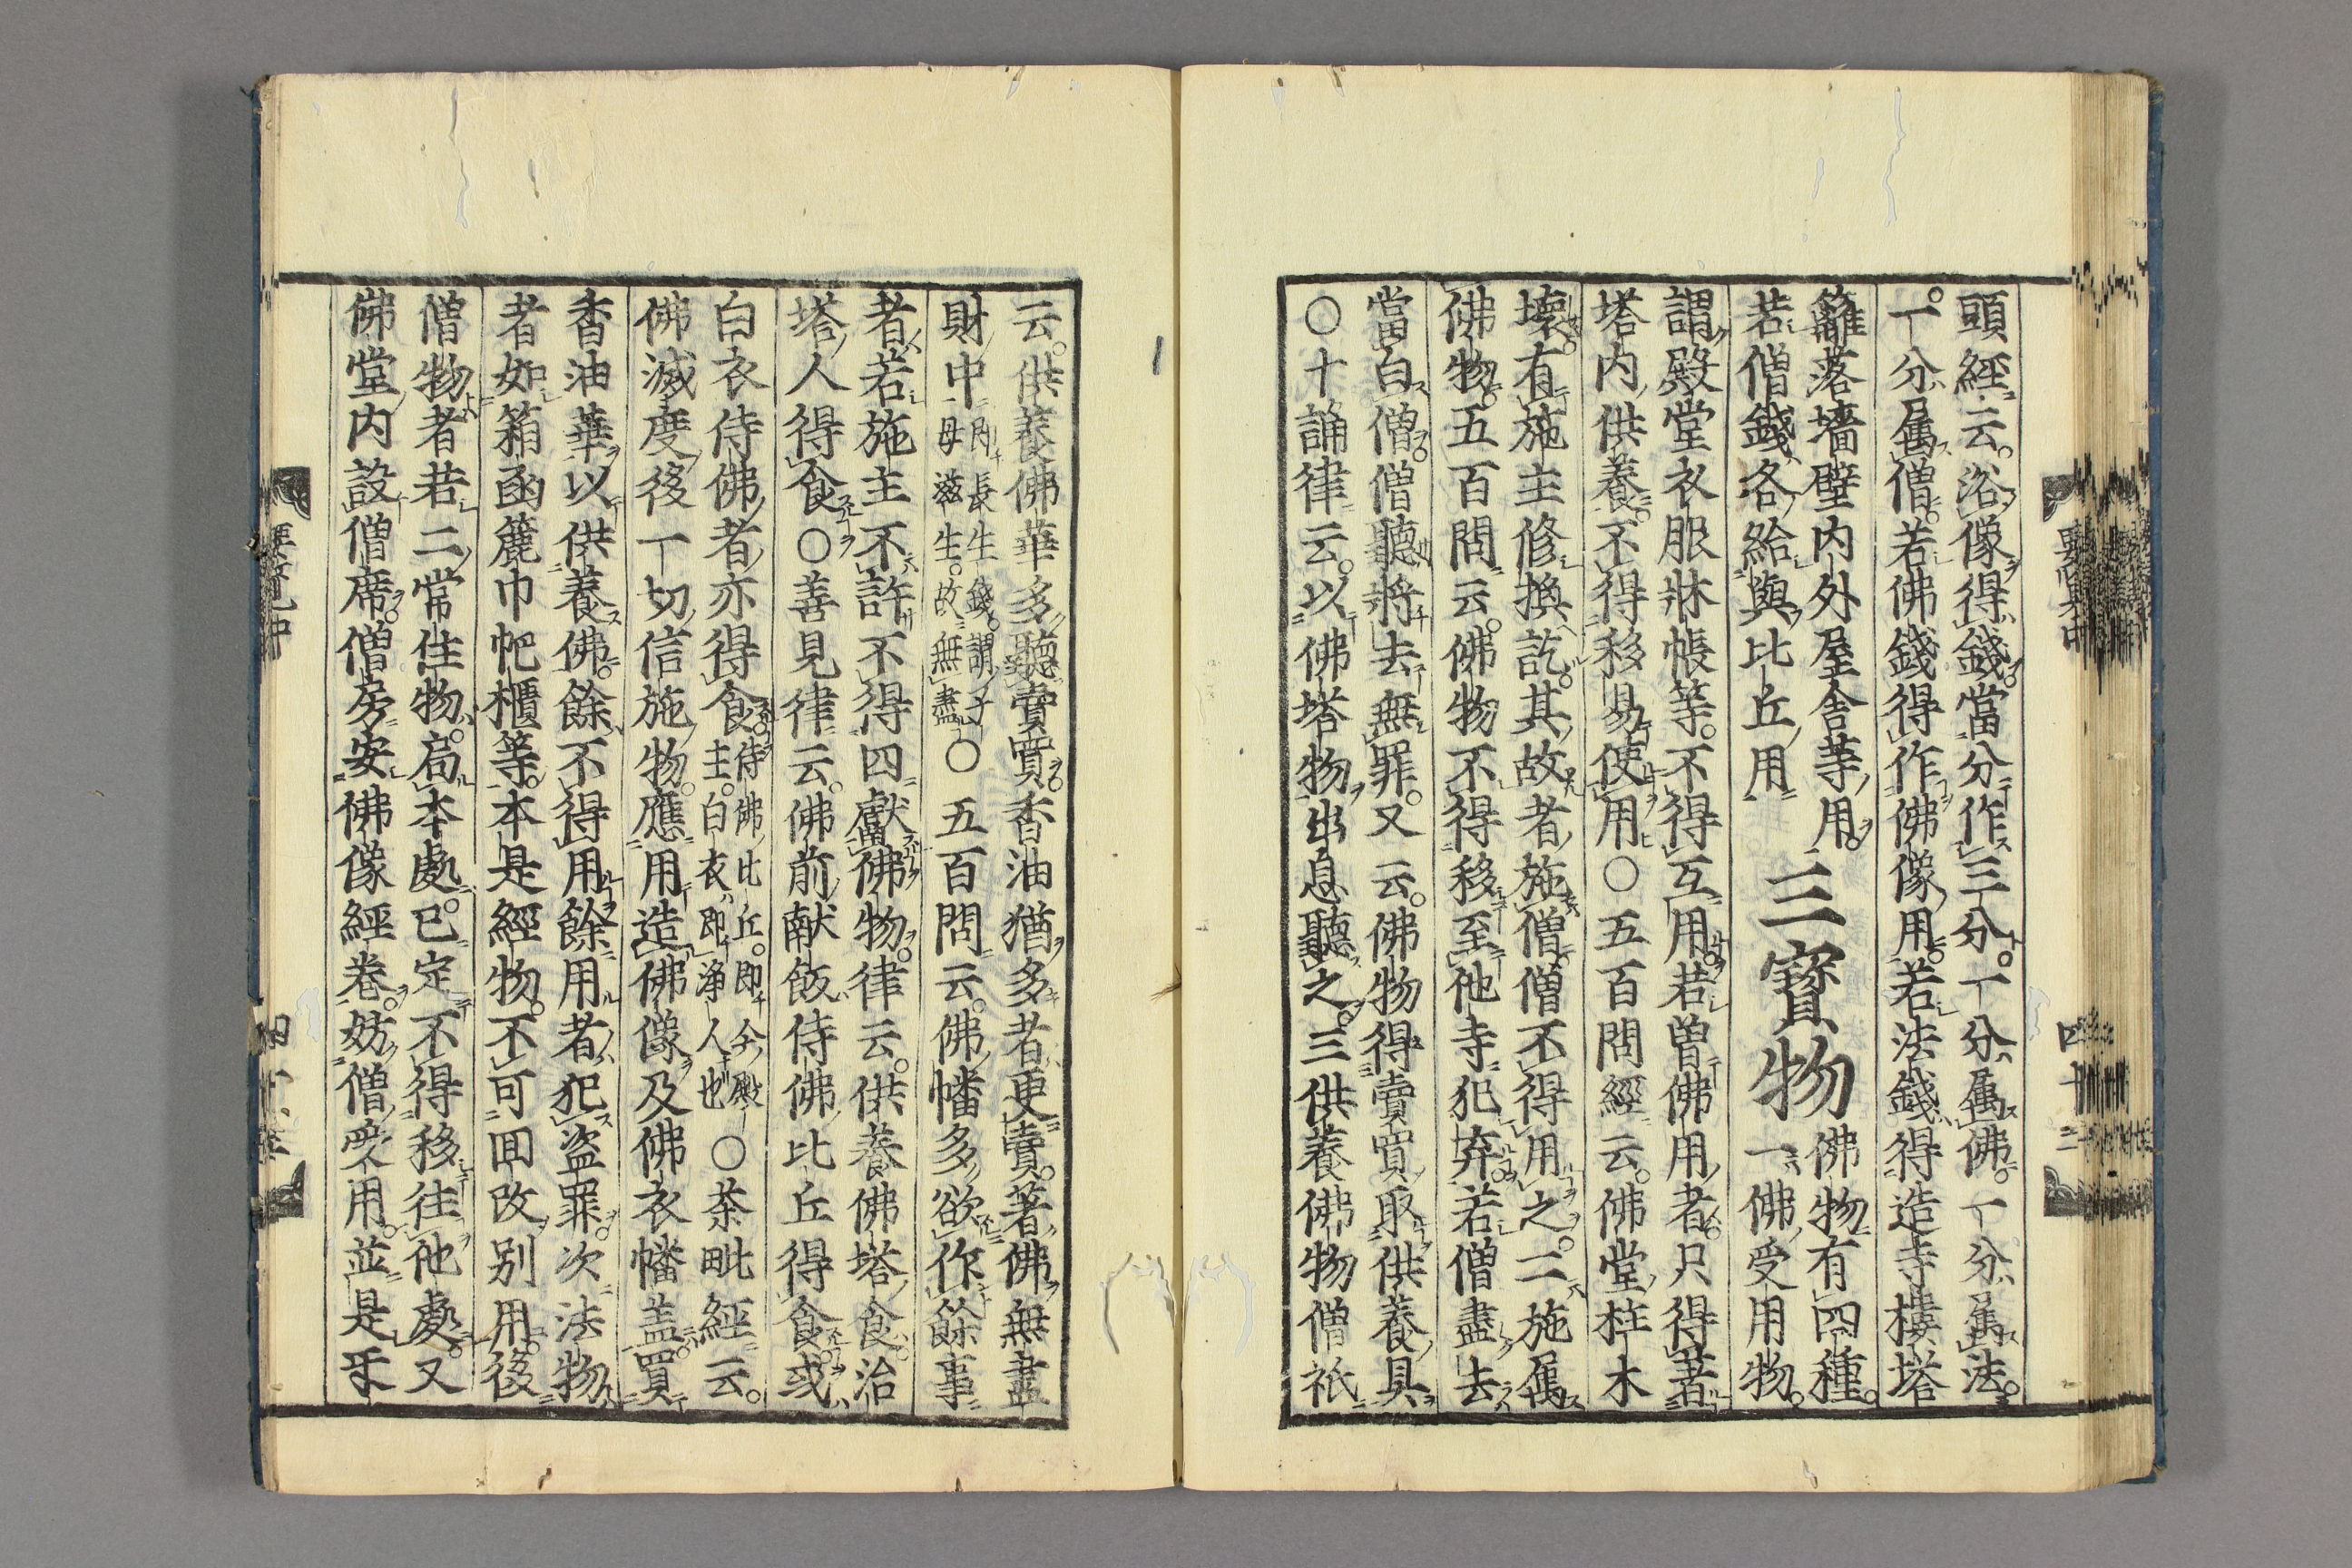 頭經云。浴像得錢。當分作三分。一分属佛。一分属法。
一分属僧。若佛錢得作佛像用。若法錢得造寺樓塔
籬落墻壁内外屋舎等用。三寳物佛物有四種。
若僧錢各給與比丘用一佛受用物。
謂殿堂衣服牀帳等。不得互用。若曽佛用者。只得著
塔内供養。不得移易使用〇五百問經云。佛堂柱木
壊。有施主修換訖。其故者施僧僧不得用之。二施属
佛物。五百問云。佛物不得移至他寺犯弃。若僧盡去
當白僧。僧聽將去無罪。又云。佛物得賣買取供養具
〇十誦律云。以佛塔物出息聽之。三供養佛物僧祇
云。供養佛華多聽賣買香油猶多者更賣。著佛無盡
財中即長生錢。謂子母滋生。故無盡〇五百問云。佛幡多欲作餘事
者若施主不許不得四獻佛物。律云。供養佛塔食。治
塔人得食〇善見律云。佛前献飯侍佛比丘得食。或
白衣侍佛者亦得食。侍佛比丘。即今殿主。白衣即浄人也〇荼毗經云。
佛滅度後一切信施物。應用造佛像及佛衣幡盖。買
香油華以供養佛。餘不得用餘用者犯盗罪。次法物
者如箱函簏巾帊櫃等。本是經物。不可回改别用。後
僧物者若二常住物。局本處。已定不得移往他處。又
佛堂内設僧席。僧房安佛像經巻。妨僧受用。並是互
要覧中
四十三